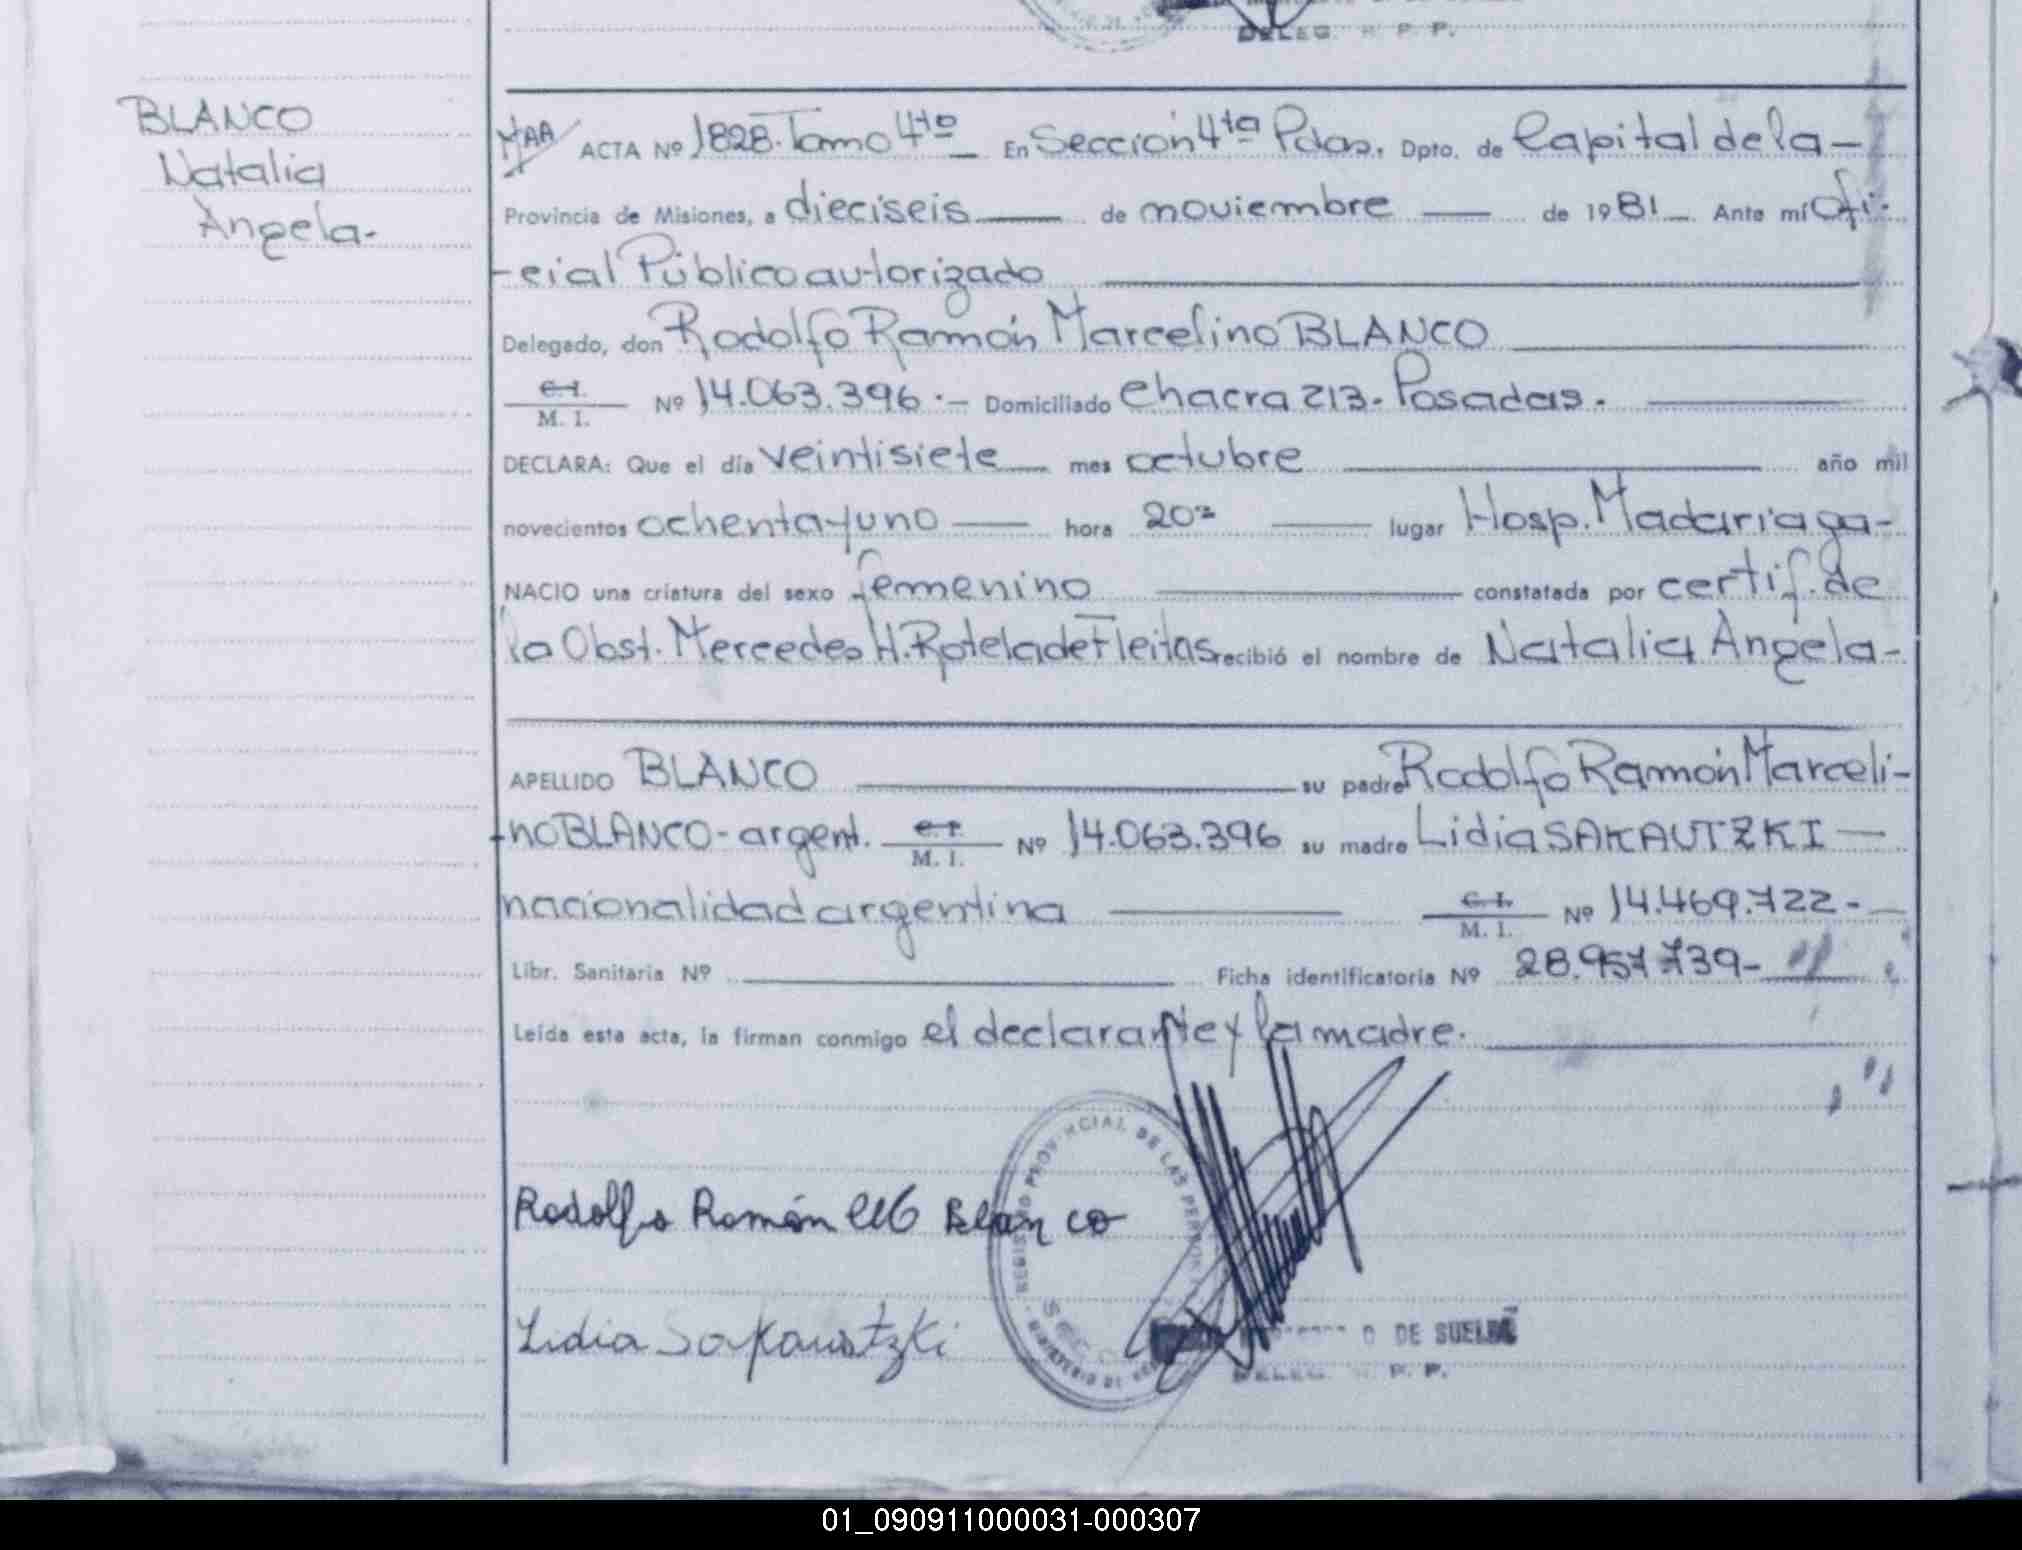 DELEG. R. P. P.
BLANCO
Natalia
Angela-
ACTA Nº 1828. Tomo 4to En Sección 4ta Pdas. Dpto. de Capital de la-
Provincia de Misiones, a dieciseis de noviembre de 1981 Ante mí Ofi-
-cial Público autorizado
Delegado, don Rodolfo Ramón Marcelino BLANCO
C.I. M. I. Nº 14.063.396.- Domiciliado Chacra 213.- Posadas.-
DECLARA: Que el día veintisiete mes octubre año mil
novecientos ochenta y uno hora 20 lugar Hosp. Madariaga-
NACIO una criatura del sexo femenino constatada por certif. de
la Obst. Mercedes H. Rotela de Fleitas recibió el nombre de Natalia Angela-
APELLIDO BLANCO su padre Rodolfo Ramón Marceli-
-no BLANCO-argent. C.I. M. I. Nº 14.063.396 su madre Lidia SAKAUTZKI
nacionalidad argentina C.I. M. I. Nº 14.469.722-
Libr. Sanitaria Nº Ficha identificatoria Nº 28.957.739-
Leída esta acta, la firman conmigo el declarante y la madre.
PROVINCIAL DE LAS PERSONAS
MINISTERIO DE
Rodolfo Ramón Blanco
Lidia Sakaustzki
DE SUELDO
DELEG. R. P. P.
01_090911000031-000307